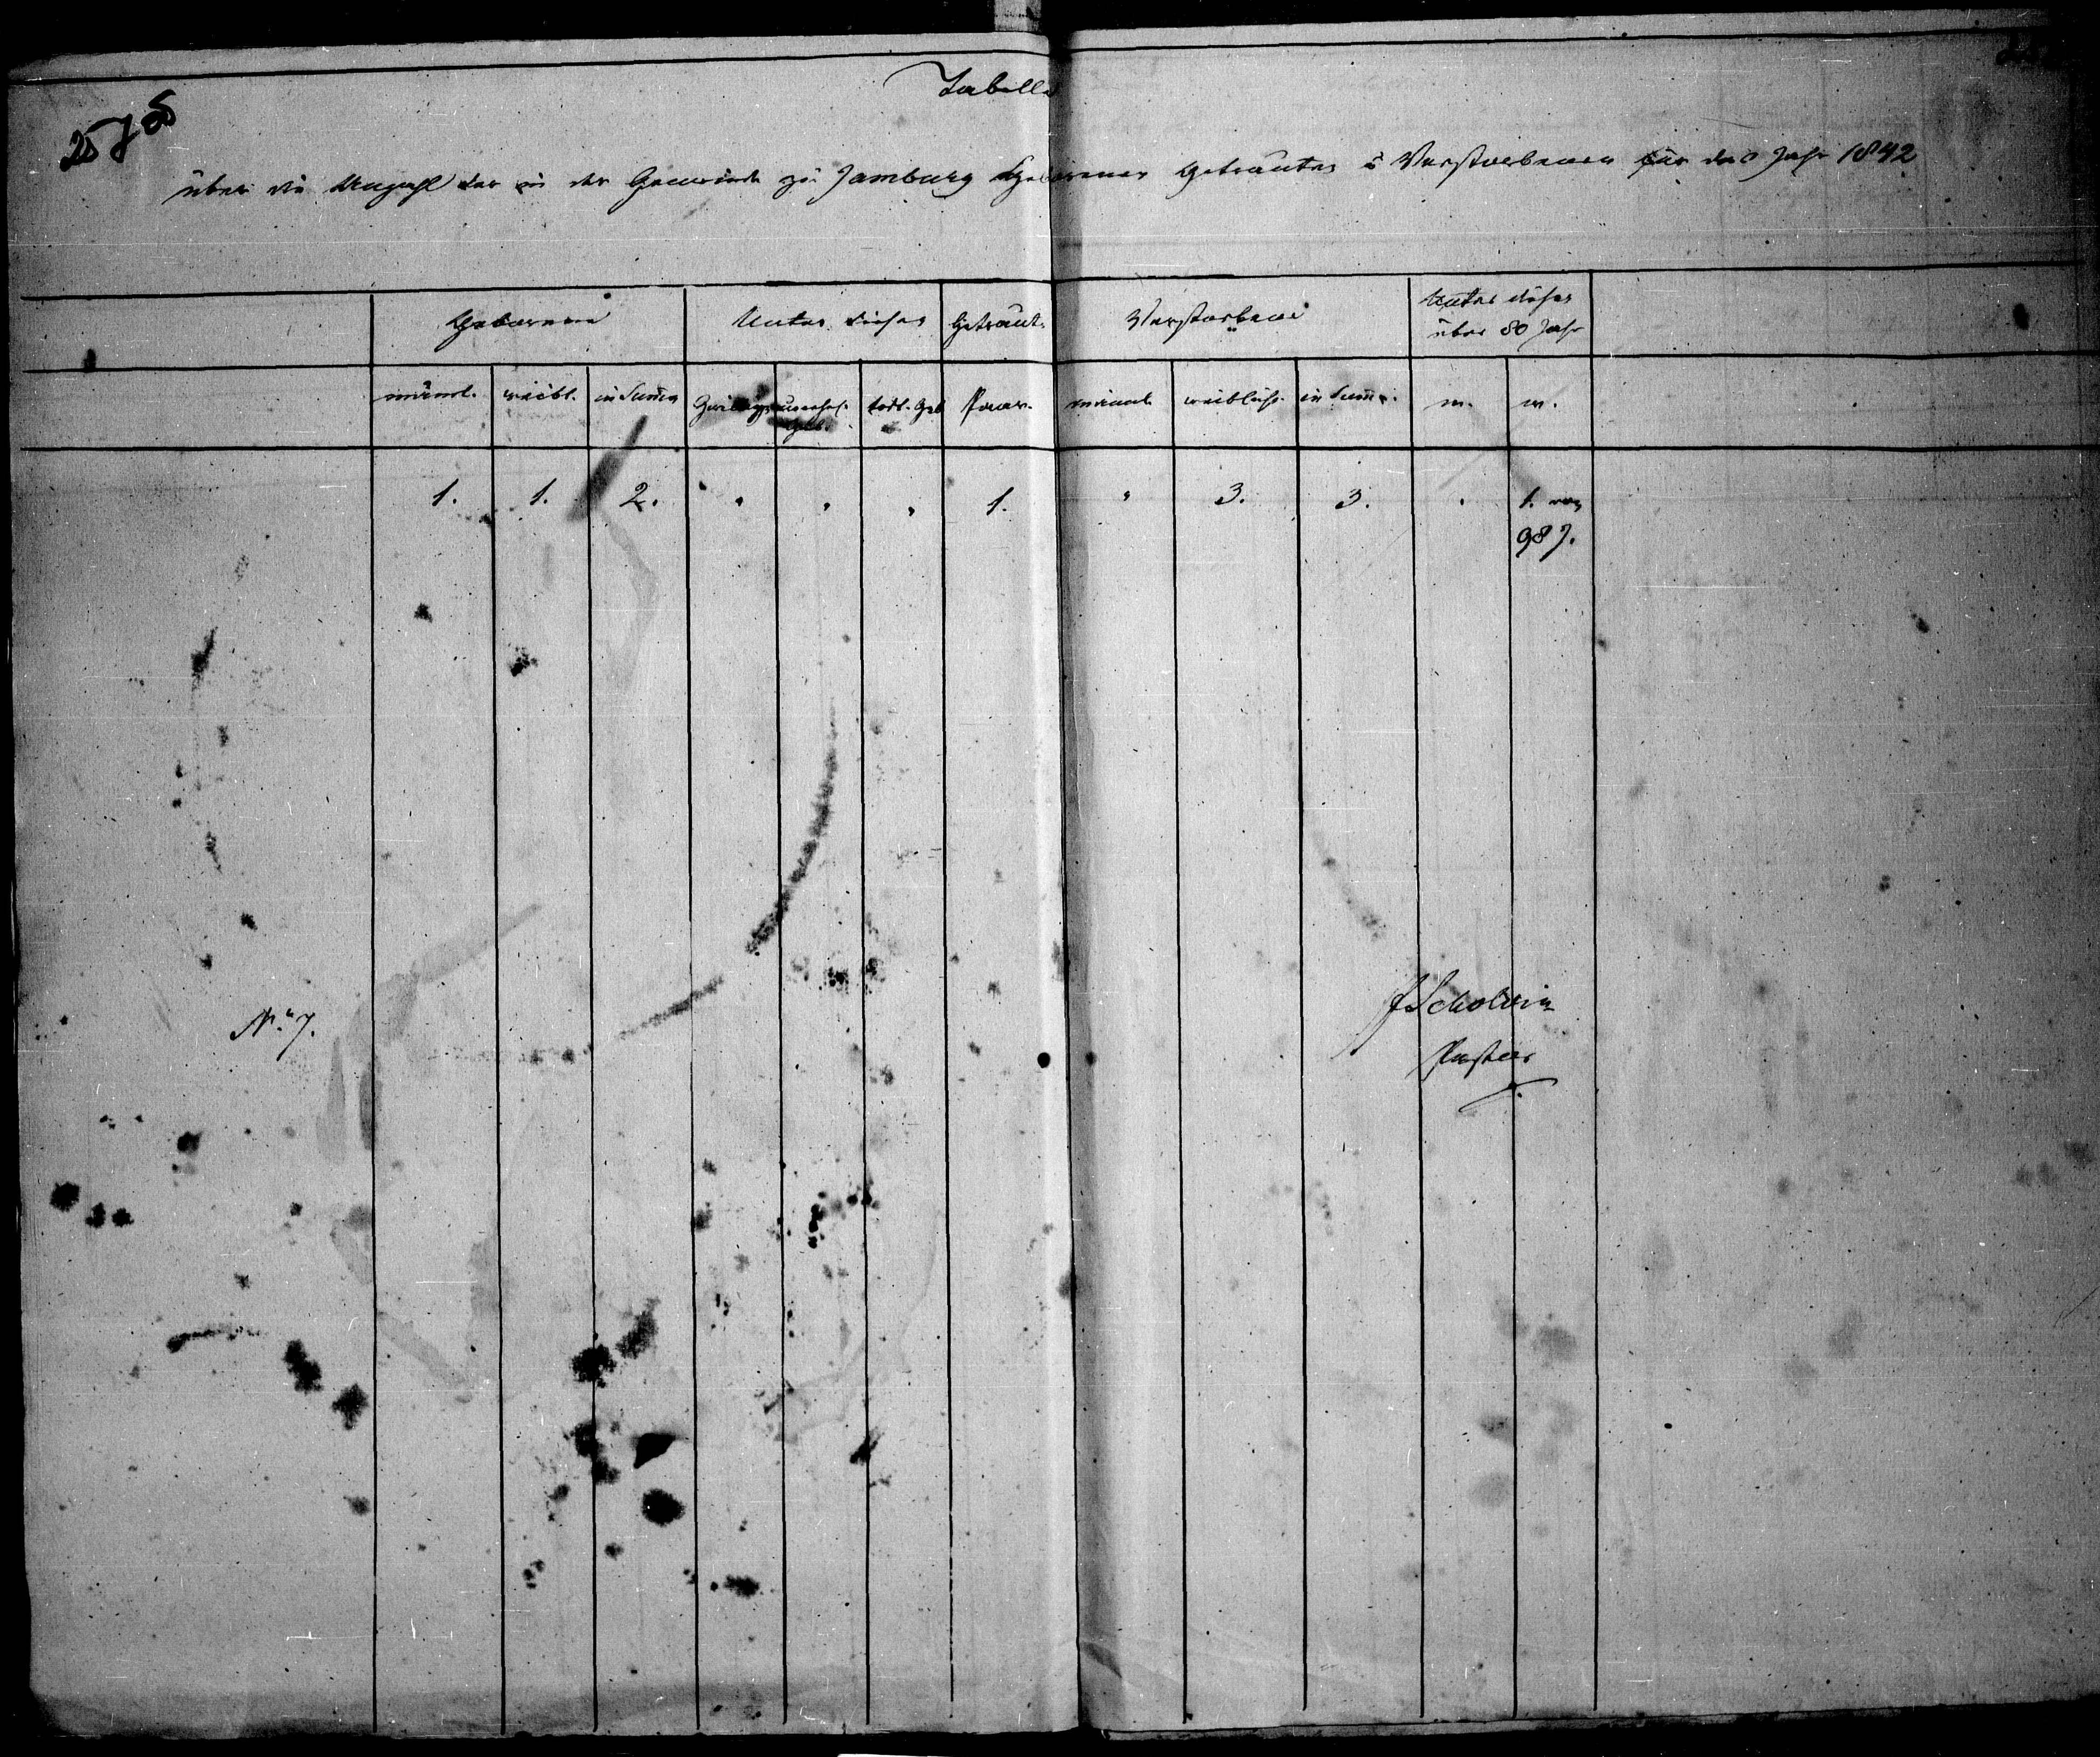 Tabelle
über die Anzahl der in der Gemeinde zu Jamburg Geborener Getrauter u Verstorbenen für das Jahr 1842
Geborene
Unter dieser
Getraute
Verstorbene
Unter dieser
über 80 Jahr
männl.
weibl.
in Summa
Zwillinge
unehel.
Geb.
todt. Geb
Paar.
männl.
weibliche.
in Summa.
m.
w.
1.
1.
2.
"
"
"
1.
"
3.
3.
"
1. von
98 J.
No 7.
Scholvin
Pastor